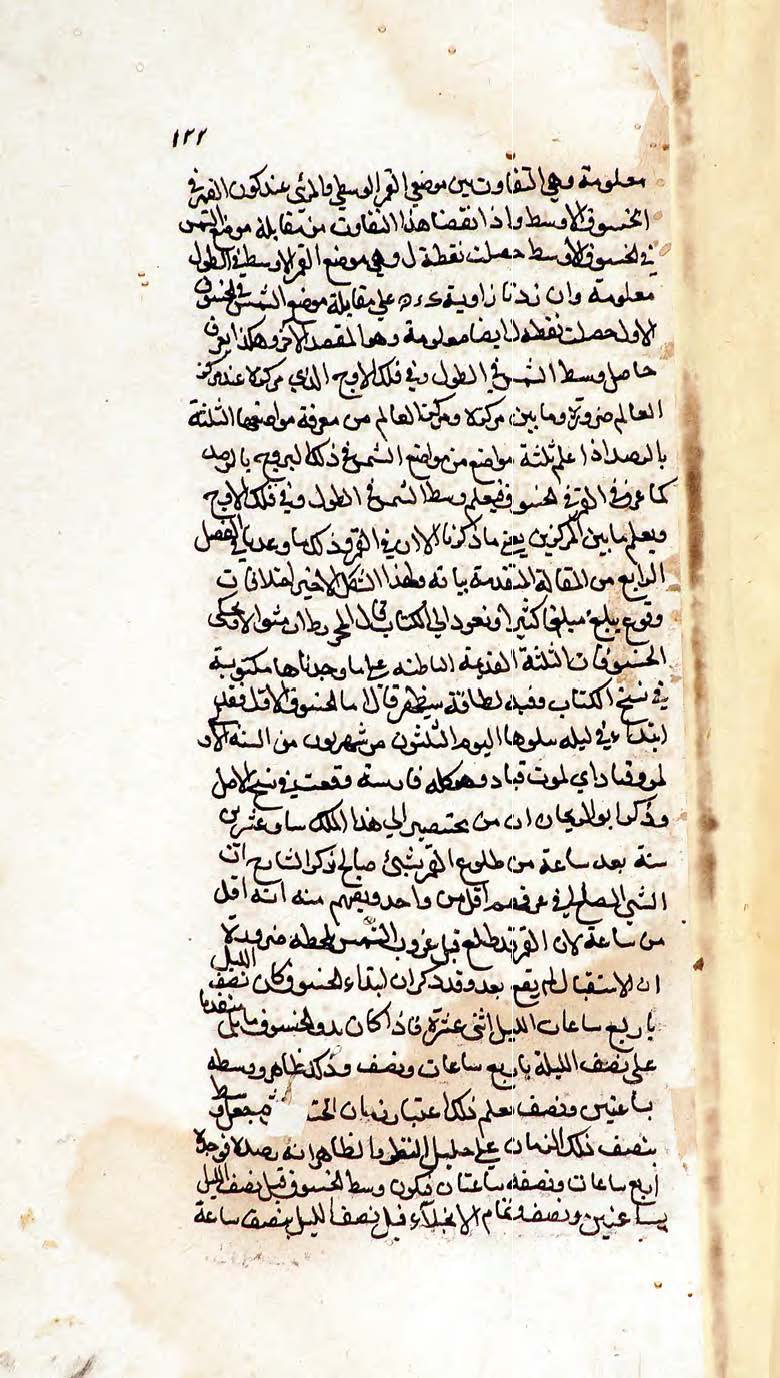 ١٢٢
معلومة وهي التفاوت بين موضعي القمر الوسطي والمرئي عند كون القمر في
الخسوف الاوسط واذا نقصنا هذا التفاوت من مقابلة موضع الشمس
في الخسوف الاوسط حصلت نقطة ل وهي موضع القمر الاوسط في الطول
معلومة وان زدنا زاوية على مقابلة موضع الشمس في الخسوف
الاول حصلت نقطة ايضا معلومة وهو المقصد الاخر وهكذا يعرف
حاصل وسط الشمس في الطول وفي فلك الاوج الذي مركزه عند مركز
العالم ضرورة وما بين مركزه ومركز العالم من معرفة مواضعها الثلثة
بالرصد اذا علم ثلثة مواضع من مواضع الشمس في ذلك البروج بالرصد
كما عرف في القمر في الخسوف فيعلم وسط الشمس في الطول وفي فلك الاوج
ويعلم ما بين المركزين يعني ما ذكرنا الان في القمر وذلك ما وعدنا في الفصل
الرابع من المقالة المتقدمة بيانه ولهذا الشكل الاخير اختلافات
وقوع يبلغ مبلغا كثيرا ونعود الى الكتاب قال
الخسوفات الثلثة القديمة على ما وجدناها مكتوبة
في نسخ الكتاب وفيه لطافة سيظهر قال اما الخسوف الاول فقد
ابتداء في ليلة اليوم الثلثون من شهر من السنة الاولى
لموت قباد وهو كلمة فارسية وقعت في نسخ الاصل
وذكر ابو الريحان ان من بختنصر الى هذا الملك وعشرين
سنة بعد ساعة من طلوع القمر بشئ صالح ذكر الشارح ان
الشئ الصالح في عرفهم اقل من واحد ويفهم منه انه اقل
من ساعة لان القمر قد طلع قبل غروب الشمس بلحظة ضرورة
ان الاستقبال لم يقع بعد وقد ذكر ان ابتداء الخسوف كان نصف الليل
باربع ساعات الليل اثنى عشرة فاذا كان بدو الخسوف متقدما
على نصف الليلة باربع ساعات ونصف وذلك ظاهر ووسطه
بساعتين ونصف يعلم ذلك اعتبار زمان فجعل وسط
بنصف ذلك الزمان على جليل النظر والظاهر انه رصده فوجده
اربع ساعات ونصفه ساعتان فيكون وسط الخسوف قبل نصف الليل
بساعتين ونصف وتمام الانجلاء قبل نصف الليل بنصف ساعة